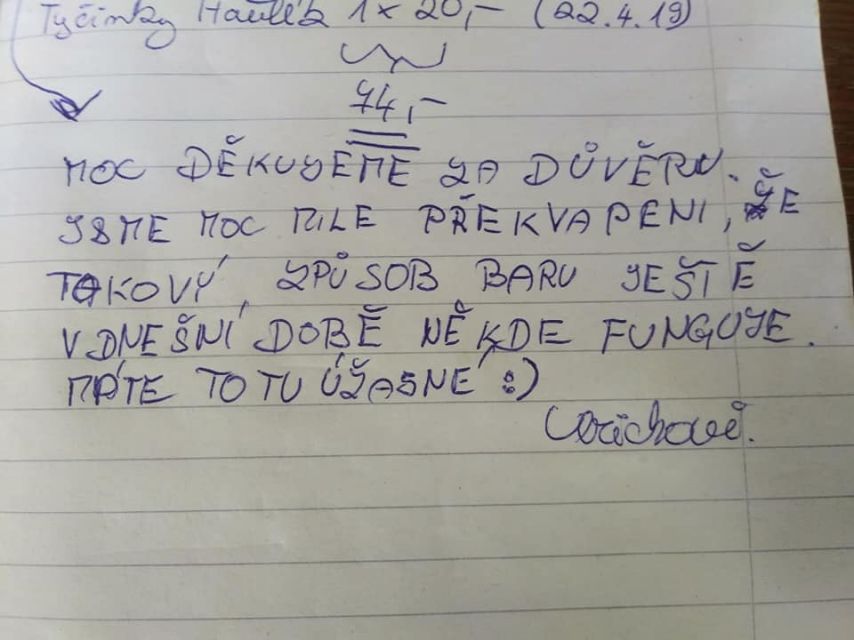 Tyčinky Havlík 1x 20,- (22.4.19)
74,-
MOC DĚKUJEME ZA DŮVĚRU.
JSME MOC MILE PŘEKVAPENI, ŽE
TAKOVÝ ZPŮSOB BARU JEŠTĚ
V DNEŠNÍ DOBĚ NĚKDE FUNGUJE.
MÁTE TO TU ÚŽASNÉ :)